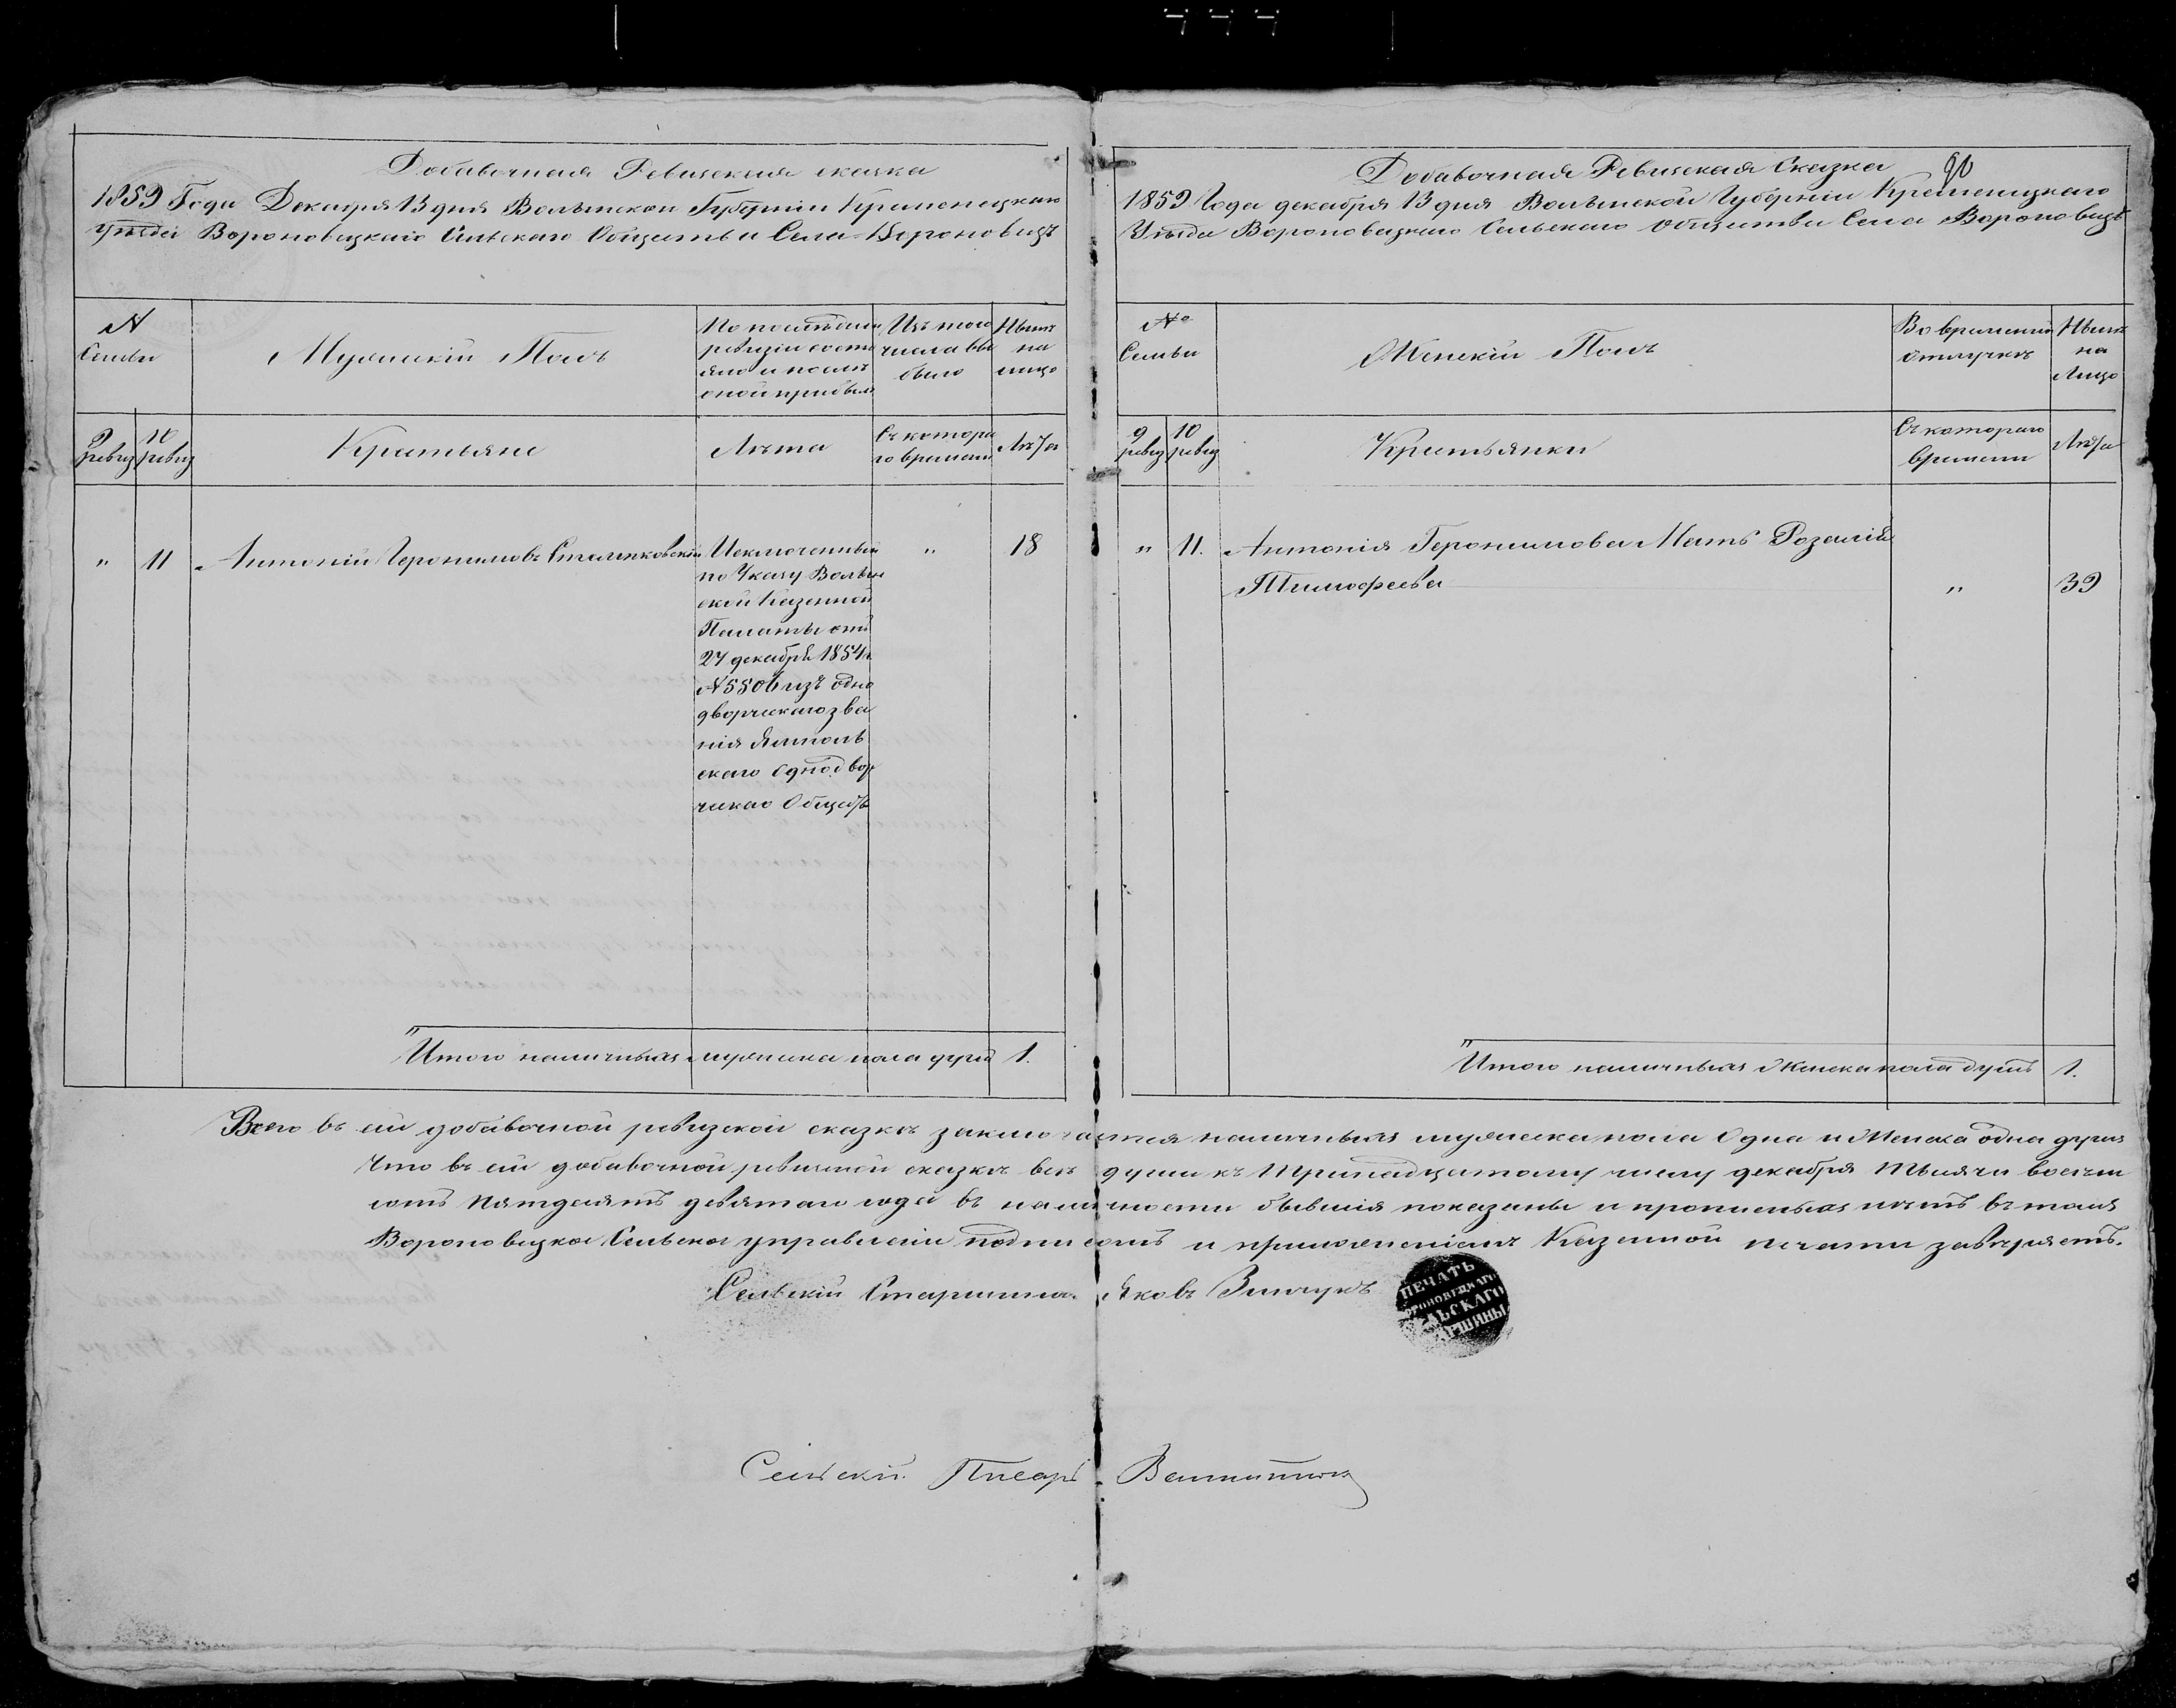 Добавочная Ревизская сказка
1859 Года Декабря 13 дня Волынской Губерніи Кременецкаго
уезда Вороновецкаго Сельскаго Общества Села Вороновецъ
№
Семьи
Мужескій Полъ
По последней
ревизіи состо
яло и после
оной прибыло
Изъ того
числа вы
было
Ныне
на
лицо
9
ревиз
10
ревиз
Крестьяне
Лета
Съ котора
го времени
Лета
" 11 Антоній Геронимовъ Исключенный " 18
по Указу Волын
ской Казенной
Палаты отъ
27 декабря 1854 г.
№ 5506 изъ одно
дворческаго зва
нія Ямполь
скаго Однодвор
ческаго Общества
Итого наличныхъ мужеска пола душъ 1.
90
Добавочная Ревизская Сказка
1859 Года декабря 13 дня Волынской Губерніи Кременецкаго
Уезда Вороновецкаго Сельскаго Общества Села Вороновецъ
№
Семьи
Женскій Полъ
Во временной
отлучке
Ныне
на
Лицо
9
ревиз
10
ревиз
Крестьянки
Съ котораго
времени
Лета
" 11. Антонія Геронимова Мать Розалія
Тимофеева " 39
Итого наличныхъ Женска пола душъ 1.
Всего въ сей добавочной ревизской сказке заключается наличныхъ мужеска пола Одна и Женска одна душа
Что въ сей добавочной ревизской сказке все души къ Тринадцатому числу декабря Тысяча восемь
сотъ Пятдесятъ девятаго года въ наличности бывшія показаны и прописныхъ нетъ въ томъ
Вороновецкое Сельское управленіе подписомъ и приложеніемъ Казенной печати заверяетъ.
Сельскій Старшина Яковъ
ПЕЧАТЬ
ВОРОНОВЕЦКАГО
СЕЛЬСКАГО
СТАРШИНЫ
Сельскій Писарь